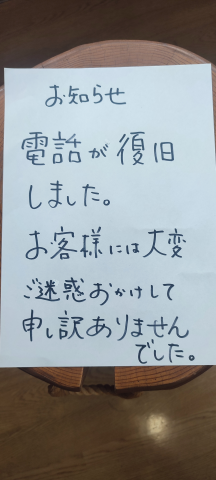 お知らせ
電話が復旧
しました。
お客様には大変
ご迷惑おかけして
申し訳ありません
でした。